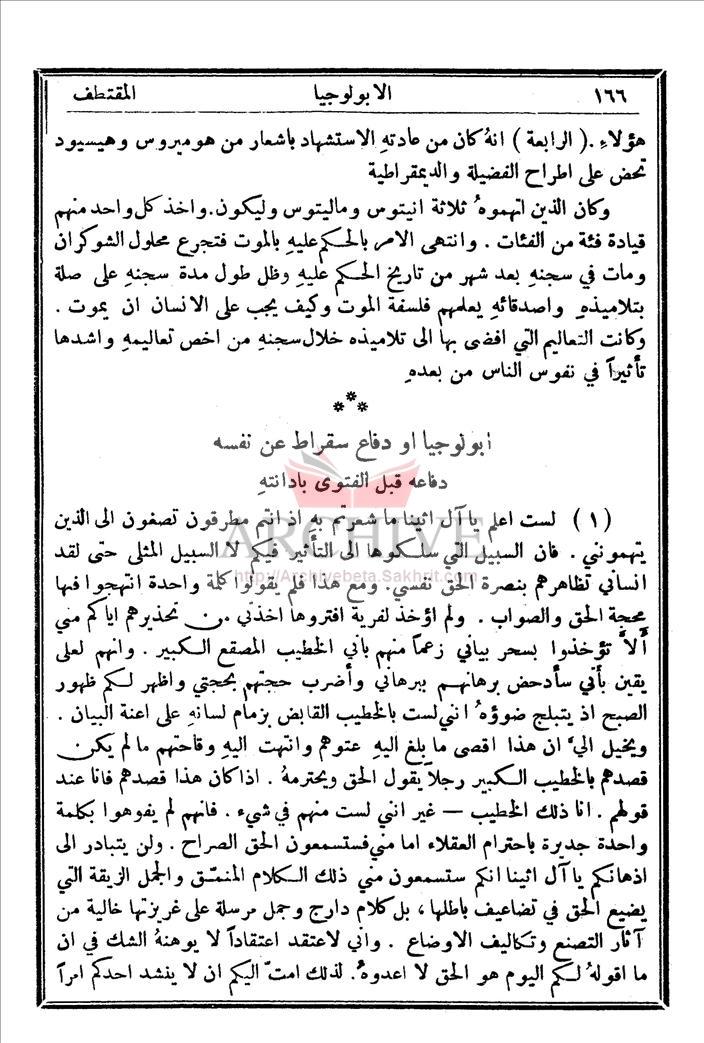 ١٦٦ الابولوجيا المقتطف
هؤلاءِ . ( الرابعة ) انهُ كان من عادتهِ الاستشهاد باشعار من هوميروس وهيسيود
تحض على اطراح الفضيلة والديمقراطية
وكان الذين اتهموهُ ثلاثة انيتوس وماليتوس وليكون. واخذ كل واحد منهم
قيادة فئة من الفئات . وانتهى الامر بالحكم عليهِ بالموت فتجرع محلول الشوكران
ومات في سجنهِ بعد شهر من تاريخ الحكم عليهِ وظل طول مدة سجنهِ على صلة
بتلاميذهِ واصدقائهِ يعلمهم فلسفة الموت وكيف يجب على الانسان ان يموت .
وكانت التعاليم التي افضى بها الى تلاميذه خلال سجنهِ من اخص تعاليمهِ واشدها
تأثيراً في نفوس الناس من بعدهِ
***
ابولوجيا او دفاع سقراط عن نفسه
دفاعه قبل الفتوى بادانتهِ
( ١ ) لست اعلم يا آل اثينا ما شعرتم به اذ انتم مطرقون تصغون الى الذين
يتهمونني . فان السبيل التي سلكوها الى التأثير فيكم لا السبيل المثلى حتى لقد
انساني تظاهرهم بنصرة الحق نفسي. ومع هذا فلم يقولوا كلمة واحدة انتهجوا فيها
محجة الحق والصواب . ولم اؤخذ لفرية افتروها اخذتي من تحذيرهم اياكم مني
ألاَّ تؤخذوا بسحر بياني زعماً منهم بأني الخطيب المصقع الكبير . وانهم لعلى
يقين بأني سأدحض برهانهم ببرهاني وأضرب حجتهم بحجتي واظهر لكم ظهور
الصبح اذ يتبلج ضوؤهُ انني لست بالخطيب القابض بزمام لسانهِ على اعنة البيان .
ويخيل اليَّ ان هذا اقصى ما بلغ اليهِ عتوهم وانتهت اليهِ وقاحتهم ما لم يكن
قصدهم بالخطيب الكبير رجلاً يقول الحق ويحترمهُ . اذا كان هذا قصدهم فانا عند
قولهم . انا ذلك الخطيب — غير انني لست منهم في شيء . فانهم لم يفوهوا بكلمة
واحدة جديرة باحترام العقلاء اما مني فستسمعون الحق الصراح . ولن يتبادر الى
اذهانكم يا آل اثينا انكم ستسمعون مني ذلك الكلام المنمّق والجمل الزيقة التي
يضيع الحق في تضاعيف باطلها ، بل كلام دارج وجمل مرسلة على غريزتها خالية من
آثار التصنع وتكاليف الاوضاع . واني لاعتقد اعتقاداً لا يوهنهُ الشك في ان
ما اقولهُ لكم اليوم هو الحق لا اعدوهُ. لذلك امتّ اليكم ان لا ينشد احدكم امراً
ARCHIVE
http://Archivebeta.Sakhrit.com